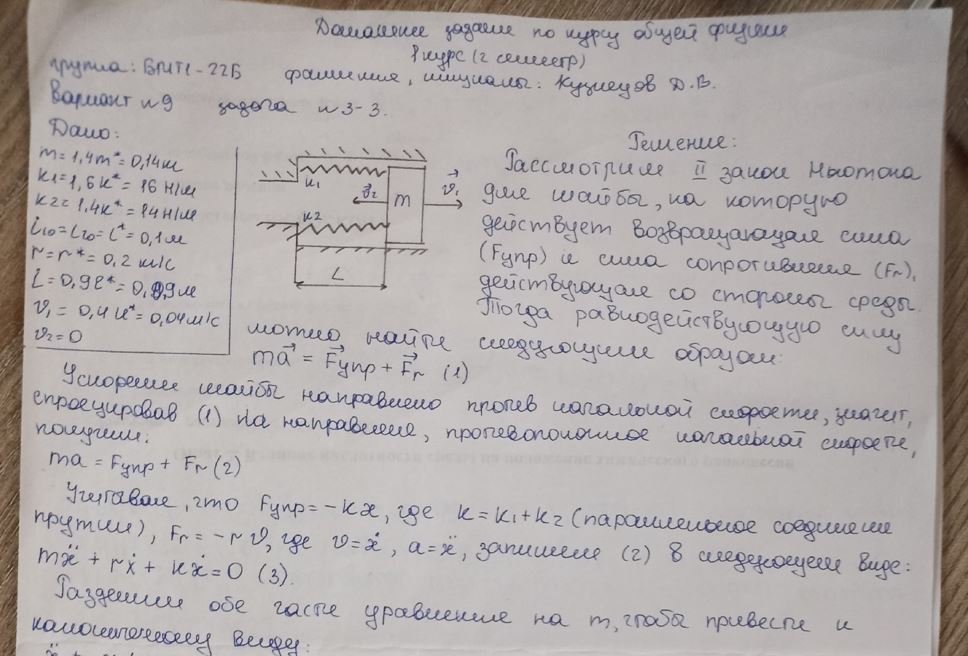 Домашнее задание по курсу общей физики
1 курс (2 семестр)
группа: БМТ1-22Б фамилия, инициалы: Кузнецов Д.В.
Вариант №9 задача №3-3.
Дано:
m = 1,4m* = 0,14кг
k1 = 1,6k* = 16 Н/м
k2 = 1.4k* = 14Н/м
l10 = l20 = l* = 0,1м
r = r* = 0.2 кг/с
L = 0,9l* = 0,09м
v1 = 0,4 u* = 0,04м/с
v2 = 0
k1
v2
m
v1
k2
L
Решение:
Рассмотрим II закон Ньютона
для шайбы, на которую
действует возвращающая сила
(Fупр) и сила сопротивления (Fr),
действующая со стороны среды.
Тогда равнодействующую силу
можно найти следующим образом:
ma = Fупр + Fr (1)
Ускорение шайбы направлено против начальной скорости, значит,
спроецировав (1) на направление, противоположное начальной скорости,
получим:
ma = Fупр + Fr (2)
Учитывая, что Fупр = -kx, где k = k1 + k2 (параллельное соединение
пружин), Fr = -rv, где v = ẋ, a = ẍ, запишем (2) в следующем виде:
mẍ + rẋ + kẋ = 0 (3).
Разделим обе части уравнения на m, чтобы привести к
каноническому виду: